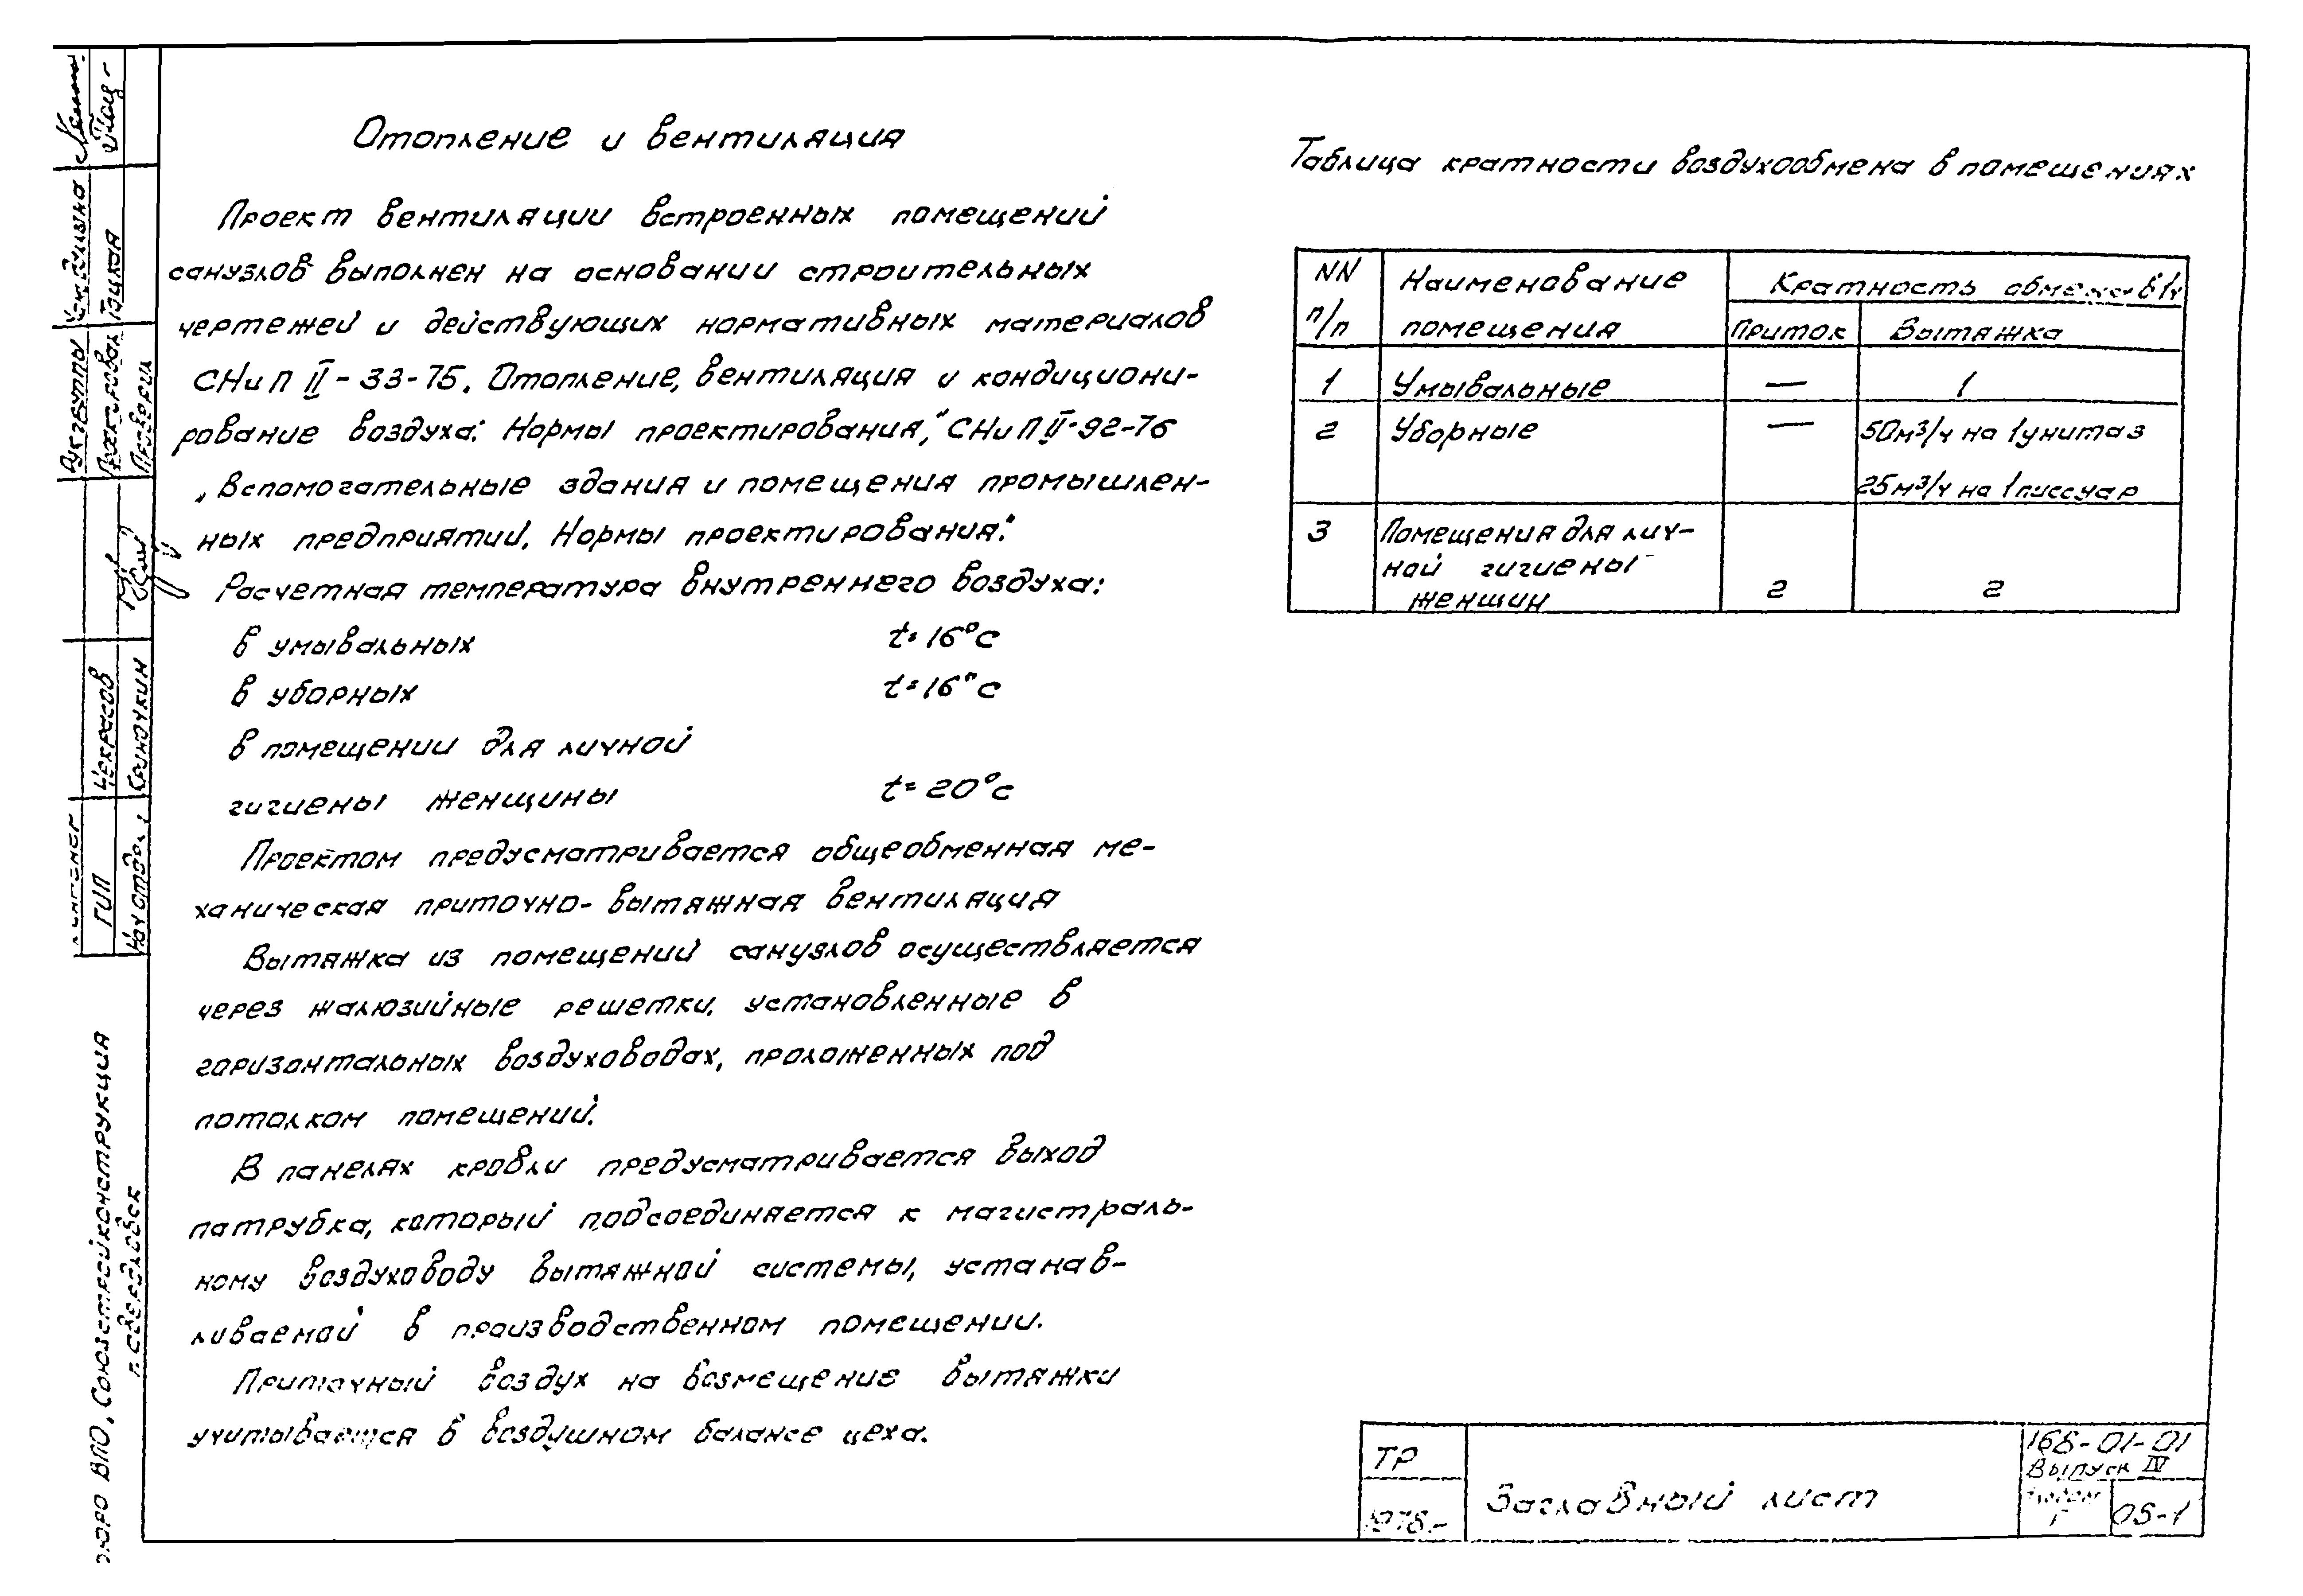 Отопление и вентиляция
Проект вентиляции встроенных помещений
санузлов выполнен на основании строительных
чертежей и действующих нормативных материалов
СНиП II-33-75. Отопление, вентиляция и кондициони-
рование воздуха. Нормы проектирования," СНиП II-92-76
„Вспомогательные здания и помещения промышлен-
ных предприятий. Нормы проектирования."
Расчетная температура внутреннего воздуха:
в умывальных t=16°С
в уборных t=16°С
в помещении для личной
гигиены женщины t=20°С
Проектом предусматривается общеобменная ме-
ханическая приточно-вытяжная вентиляция
Вытяжка из помещений санузлов осуществляется
через жалюзийные решетки, установленные в
горизонтальных воздуховодах, проложенных под
потолком помещений.
В панелях кровли предусматривается выход
патрубка, который подсоединяется к магистраль-
ному воздуховоду вытяжной системы, устанав-
ливаемой в производственном помещении.
Приточный воздух на возмещение вытяжки
учитывается в воздушном балансе цеха.
Таблица кратности воздухообмена в помещениях
NN Наименование Кратность обмена в 1ч
п/п помещения Приток Вытяжка
1 Умывальные — 1
2 Уборные — 50м³/ч на 1 унитаз
25м³/ч на 1 писсуар
3 Помещения для лич-
ной гигиены
женщин 2 2
ТР
Заглавный лист
-01-01
Выпуск IV
Г
1978
Рук. группы
Проектировал
Проверил
Некрасов
ГИП
Нач отдела
ВПО „Союзстройконструкция
г. Свердловск